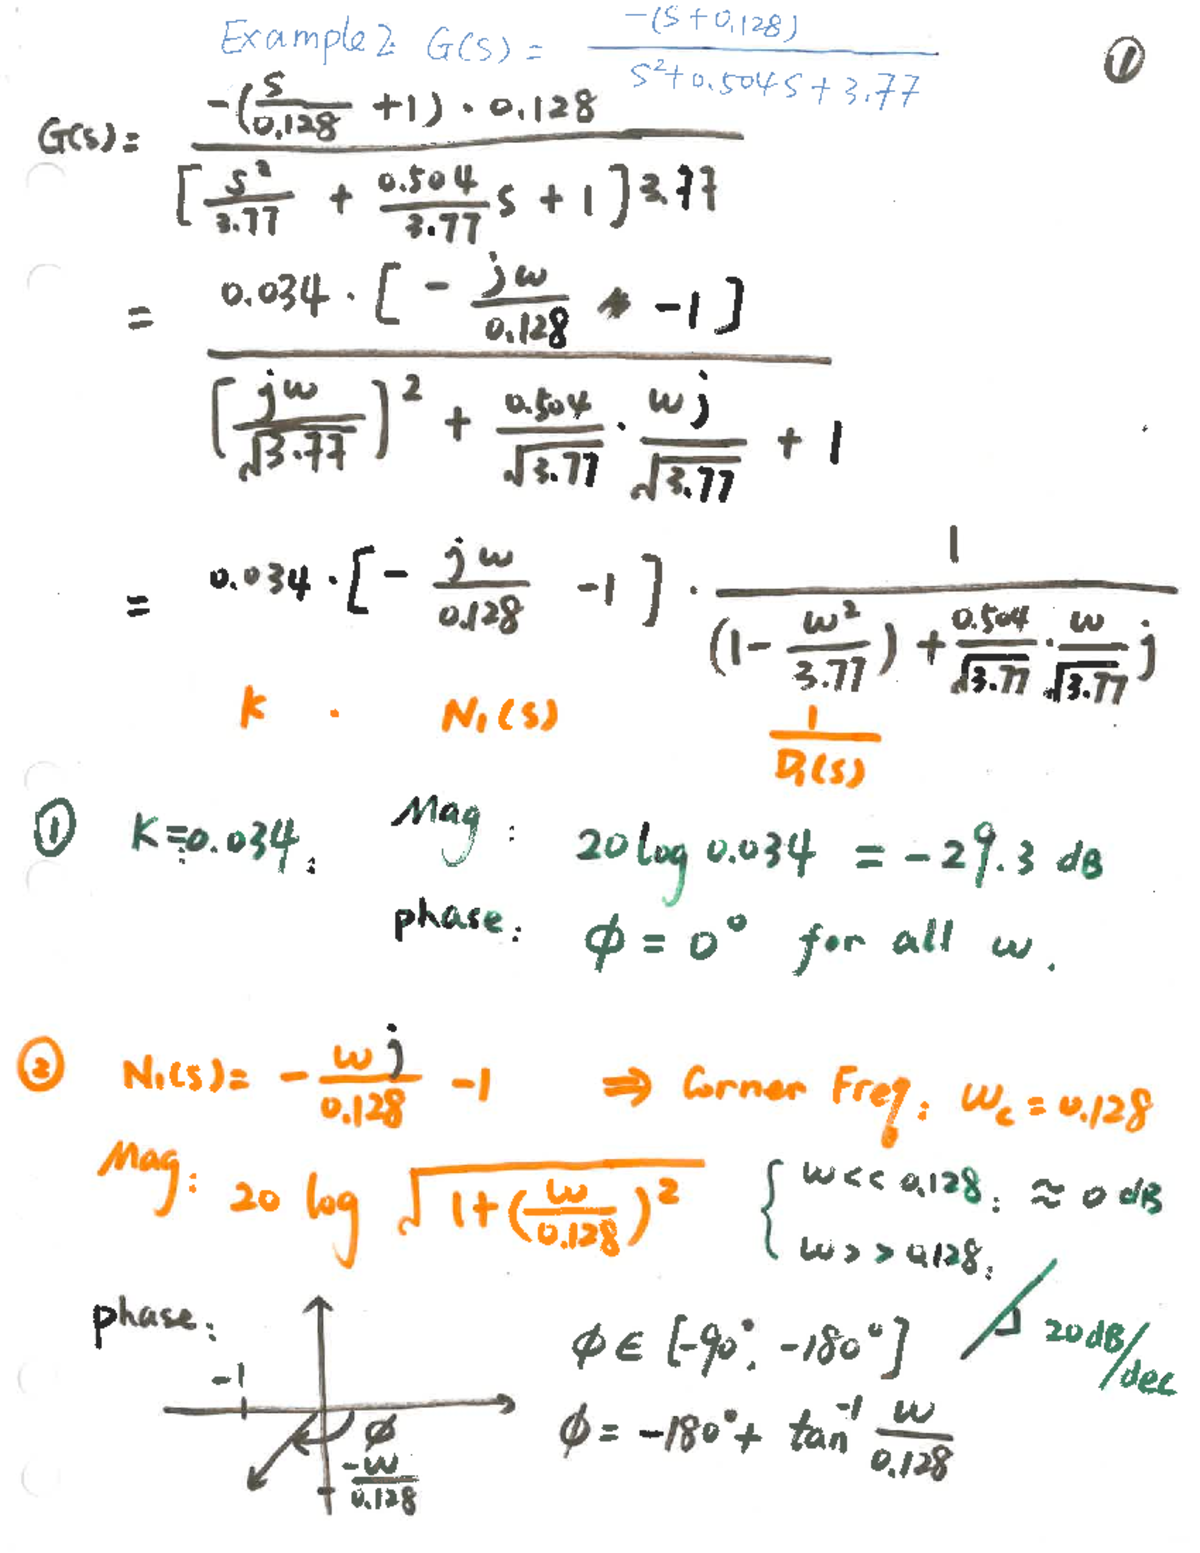 Example 2: G(s) = -(s+0.128) / s²+0.504s+3.77
①
G(s) = -(s/0.128 +1) · 0.128 / [s²/3.77 + 0.504/3.77 s + 1] 3.77
= 0.034 · [ - jω/0.128 -1 ] / [jω/√3.77]² + 0.504/√3.77 · ωj/√3.77 + 1
= 0.034 · [ - jω/0.128 -1 ] · 1 / (1 - ω²/3.77) + 0.504/√3.77 · ω/√3.77 j
K · N₁(s) 1/D₁(s)
① K=0.034: Mag: 20 log 0.034 = -29.3 dB
phase: φ = 0° for all ω.
② N₁(s) = - ωj/0.128 -1 ⇒ Corner Freq: ωc = 0.128
Mag: 20 log √1+(ω/0.128)² { ω<<0.128: ≈ 0 dB
ω>>0.128: 20dB/dec
phase: φ ∈ [-90°, -180°]
-1
φ = -180° + tan⁻¹ ω/0.128
φ
-ω/0.128